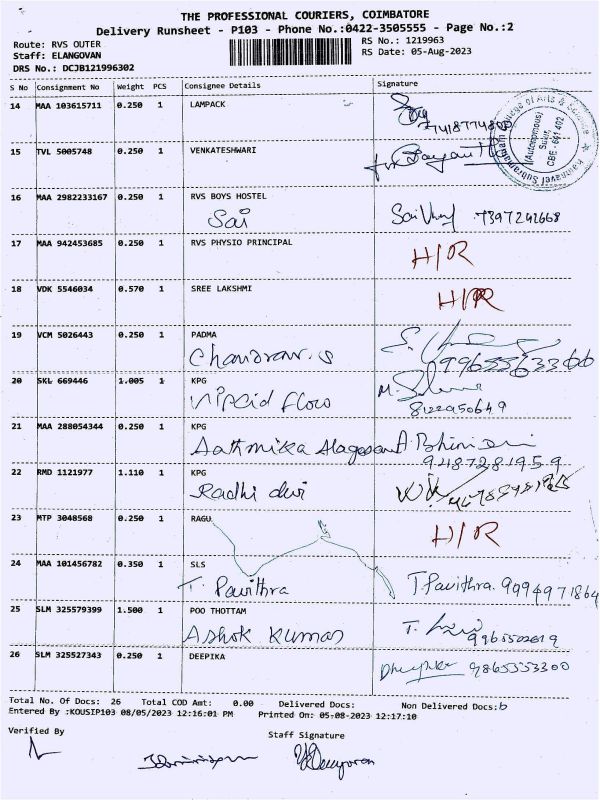 THE PROFESSIONAL COURIERS, COIMBATORE
Delivery Runsheet - P103 - Phone No.:0422-3505555 - Page No.:2
Route: RVS OUTER
RS No.: 1219963
Staff: ELANGOVAN
RS Date: 05-Aug-2023
DRS No.: DCJB121996302
S No Consignment No Weight PCS Consignee Details Signature
14 MAA 103615711 0.250 1 LAMPACK
15 TVL 5005748 0.250 1 VENKATESHWARI
(Autonomous)
Sulur,
CBE - 641 402
16 MAA 2982233167 0.250 1 RVS BOYS HOSTEL
Sai 7397242668
17 MAA 942453685 0.250 1 RVS PHYSIO PRINCIPAL
H/R
18 VDK 5546034 0.570 1 SREE LAKSHMI
H/R
19 VCM 5026443 0.250 1 PADMA
Chandran. S
20 SKL 669446 1.005 1 KPG
21 MAA 288054344 0.250 1 KPG
Aathmika Alagesan
22 RMD 1121977 1.110 1 KPG
Radhi devi
23 MTP 3048568 0.250 1 RAGU
H/R
24 MAA 101456782 0.350 1 SLS
T. Pavithra T. Pavithra. 9094971864
25 SLM 325579399 1.500 1 POO THOTTAM
Ashok Kumar
26 SLM 325527343 0.250 1 DEEPIKA
9865553300
Total No. Of Docs: 26 Total COD Amt: 0.00 Delivered Docs: Non Delivered Docs:
Entered By :KOUSIP103 08/05/2023 12:16:01 PM Printed On: 05-08-2023 12:17:10
Verified By Staff Signature